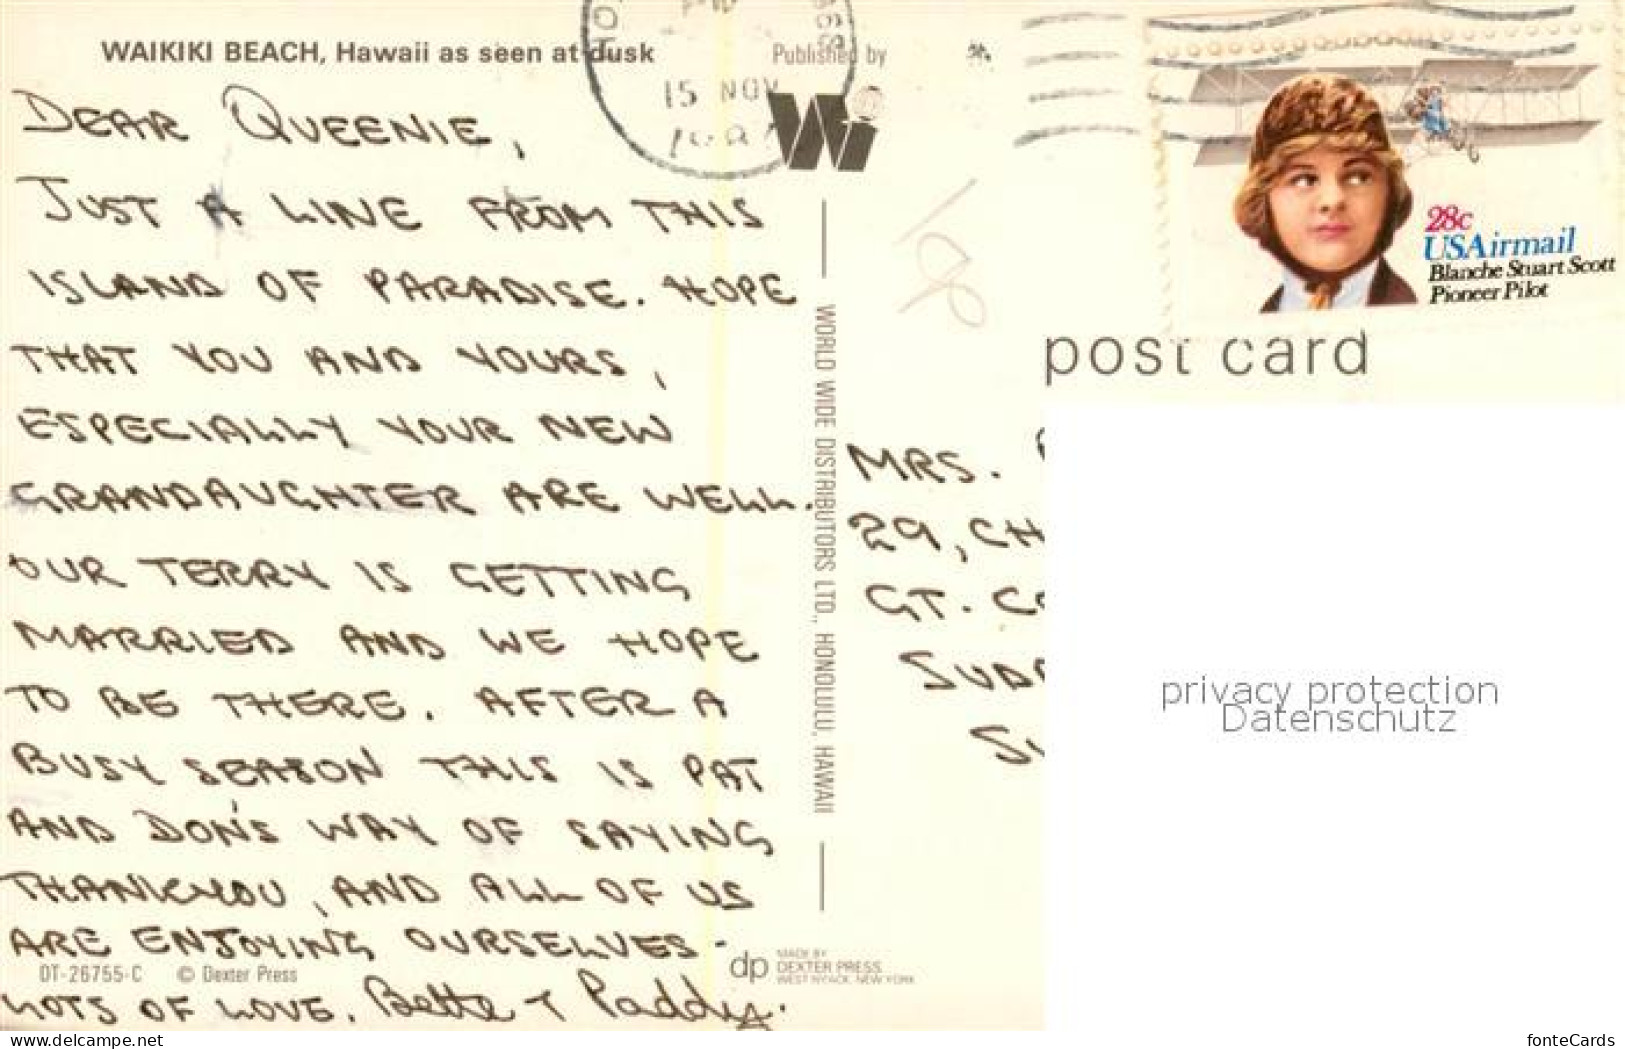 WAIKIKI BEACH, Hawaii as seen at dusk
Published by
15 NOV
DEAR QUEENIE,
JUST A LINE FROM THIS
ISLAND OF PARADISE. HOPE
THAT YOU AND YOURS,
ESPECIALLY YOUR NEW
GRANDAUGHTER ARE WELL.
OUR TERRY IS GETTING
MARRIED AND WE HOPE
TO BE THERE. AFTER A
BUSY SEASON THIS IS PAT
AND DON'S WAY OF SAYING
THANKYOU, AND ALL OF US
ARE ENJOYING OURSELVES -
LOTS OF LOVE. Bette + Paddy.
DT-26755-C © Dexter Press
WORLD WIDE DISTRIBUTORS LTD., HONOLULU, HAWAII
dp MADE BY
DEXTER PRESS
WEST NYACK, NEW YORK
28c
USAirmail
Blanche Stuart Scott
Pioneer Pilot
post card
MRS.
29, CH
GT. CO
SUD
privacy protection
Datenschutz
www.delcampe.net
fonteCards